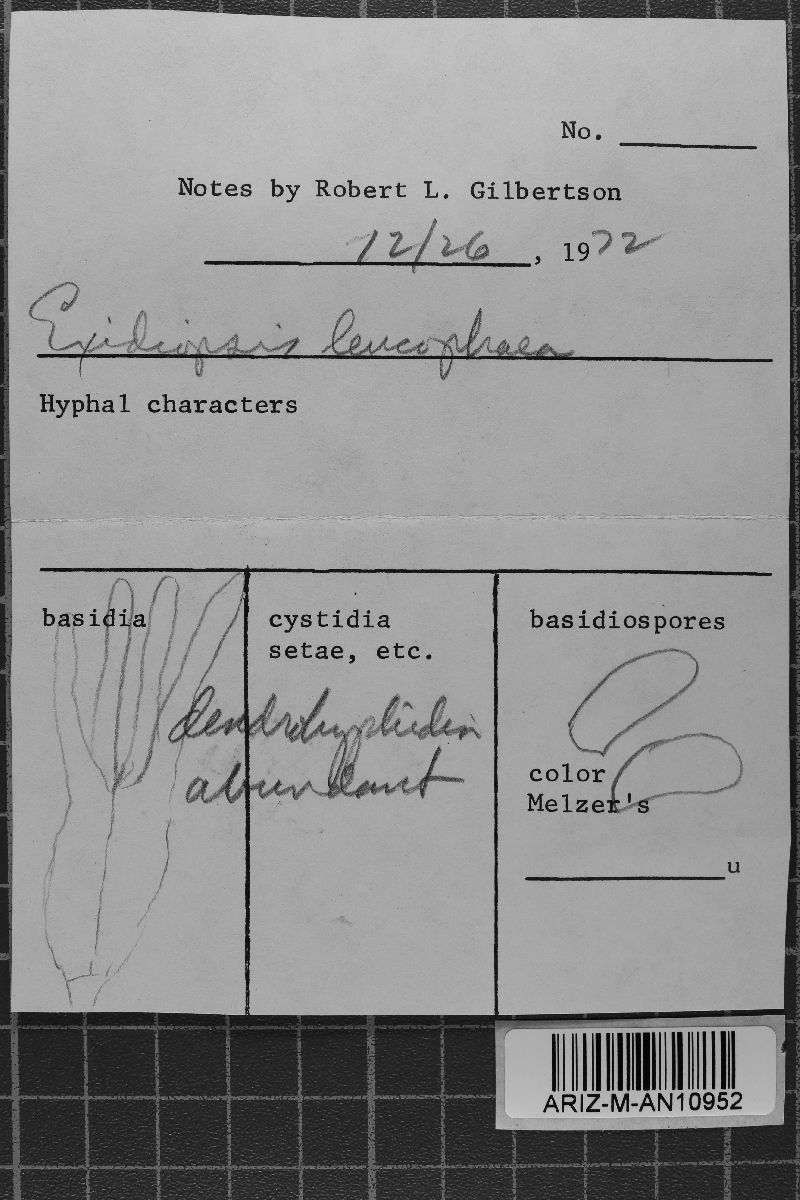 No.
Notes by Robert L. Gilbertson
12/26, 1972
Exidiopsis leucophaea
Hyphal characters
basidia
cystidia
setae, etc.
dendrohyphidia
abundant
basidiospores
color
Melzer's
u
ARIZ-M-AN10952